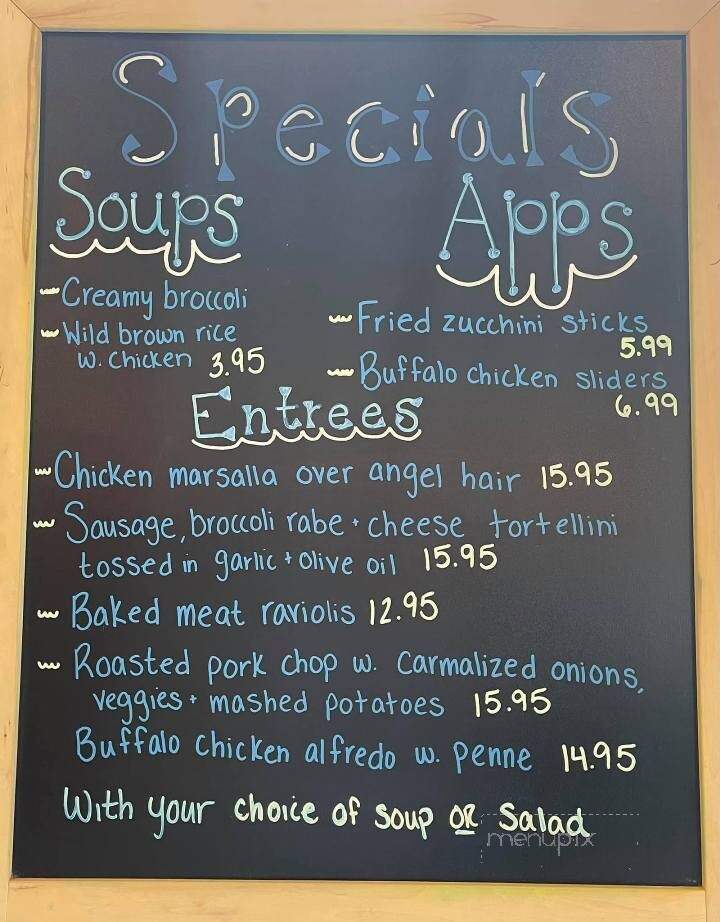 Specials
Soups
Creamy broccoli
Wild brown rice
w. chicken 3.95
Apps
Fried zucchini sticks
5.99
Buffalo chicken sliders
6.99
Entrees
Chicken marsalla over angel hair 15.95
Sausage, broccoli rabe + cheese tortellini
tossed in garlic + olive oil 15.95
Baked meat raviolis 12.95
Roasted pork chop w. carmalized onions,
veggies + mashed potatoes 15.95
Buffalo chicken alfredo w. penne 14.95
With your choice of soup OR Salad
menupix